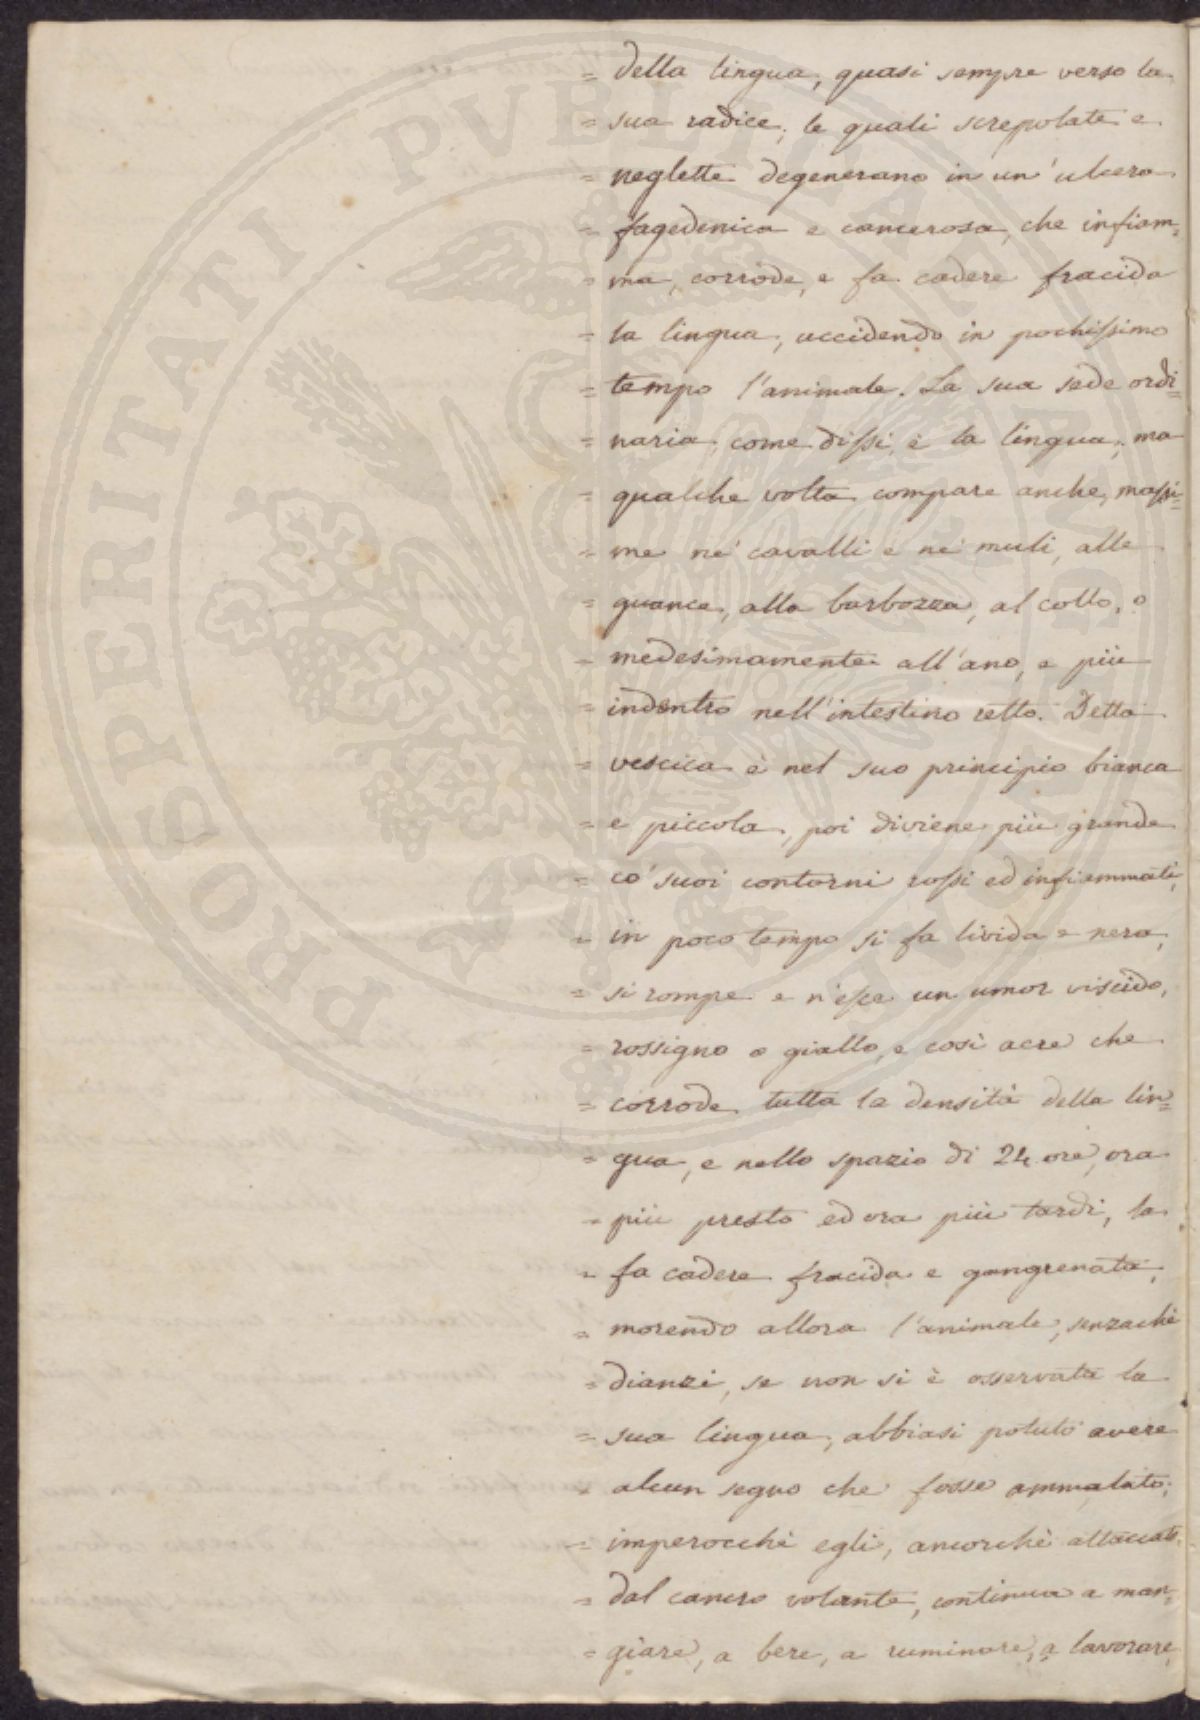 = della lingua, quasi sempre verso la
= sua radice, le quali screpolate e
= neglette degenerano in un'ulcera
= fagedenica e cancerosa, che infiam=
= ma, corrode, e fa cadere fracida
= la lingua, uccidendo in pochissimo
= tempo l'animale. La sua sede ordi=
= naria, come dissi, è la lingua, ma
= qualche volta compare anche, massi=
= me ne' cavalli e ne' muli, alle
= guance, alla barbozza, al collo, o
= medesimamente all'ano, e più
= indentro nell'intestino retto. Detta
= vescica è nel suo principio bianca
= e piccola, poi diviene più grande
= co' suoi contorni rossi ed infiammati,
= in poco tempo si fa livida e nera,
= si rompe e n'esce un umor viscido,
= rossigno o giallo, e così acre che
= corrode tutta la densità della lin=
= gua, e nello spazio di 24 ore, ora
= più presto ed ora più tardi, la
= fa cadere fracida e gangrenata,
= morendo allora l'animale, senzachè
= dianzi, se non si è osservata la
= sua lingua, abbiasi potuto avere
= alcun segno che fosse ammalato;
= imperocchè egli, ancorchè attaccato
= dal cancro volante, continua a man=
= giare, a bere, a ruminare, a lavorare,
PROSPERITATI PVBLICAE AVGENDAE